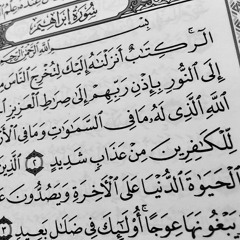 سُورَةُ إِبْرَاهِيمَ
بِسْمِ اللَّهِ الرَّحْمَٰنِ الرَّحِيمِ
الٓر ۚ كِتَٰبٌ أَنزَلْنَٰهُ إِلَيْكَ لِتُخْرِجَ النَّاسَ
إِلَى النُّورِ بِإِذْنِ رَبِّهِمْ إِلَىٰ صِرَٰطِ الْعَزِيزِ
اللَّهِ الَّذِي لَهُۥ مَا فِي السَّمَٰوَٰتِ وَمَا فِي
لِّلْكَٰفِرِينَ مِنْ عَذَابٍ شَدِيدٍ ٢ الَّذِينَ
الْحَيَوٰةَ الدُّنْيَا عَلَى الْءَاخِرَةِ وَيَصُدُّونَ
يَبْغُونَهَا عِوَجًا ۚ أُو۟لَٰٓئِكَ فِي ضَلَٰلٍۭ بَعِيدٍ ٣